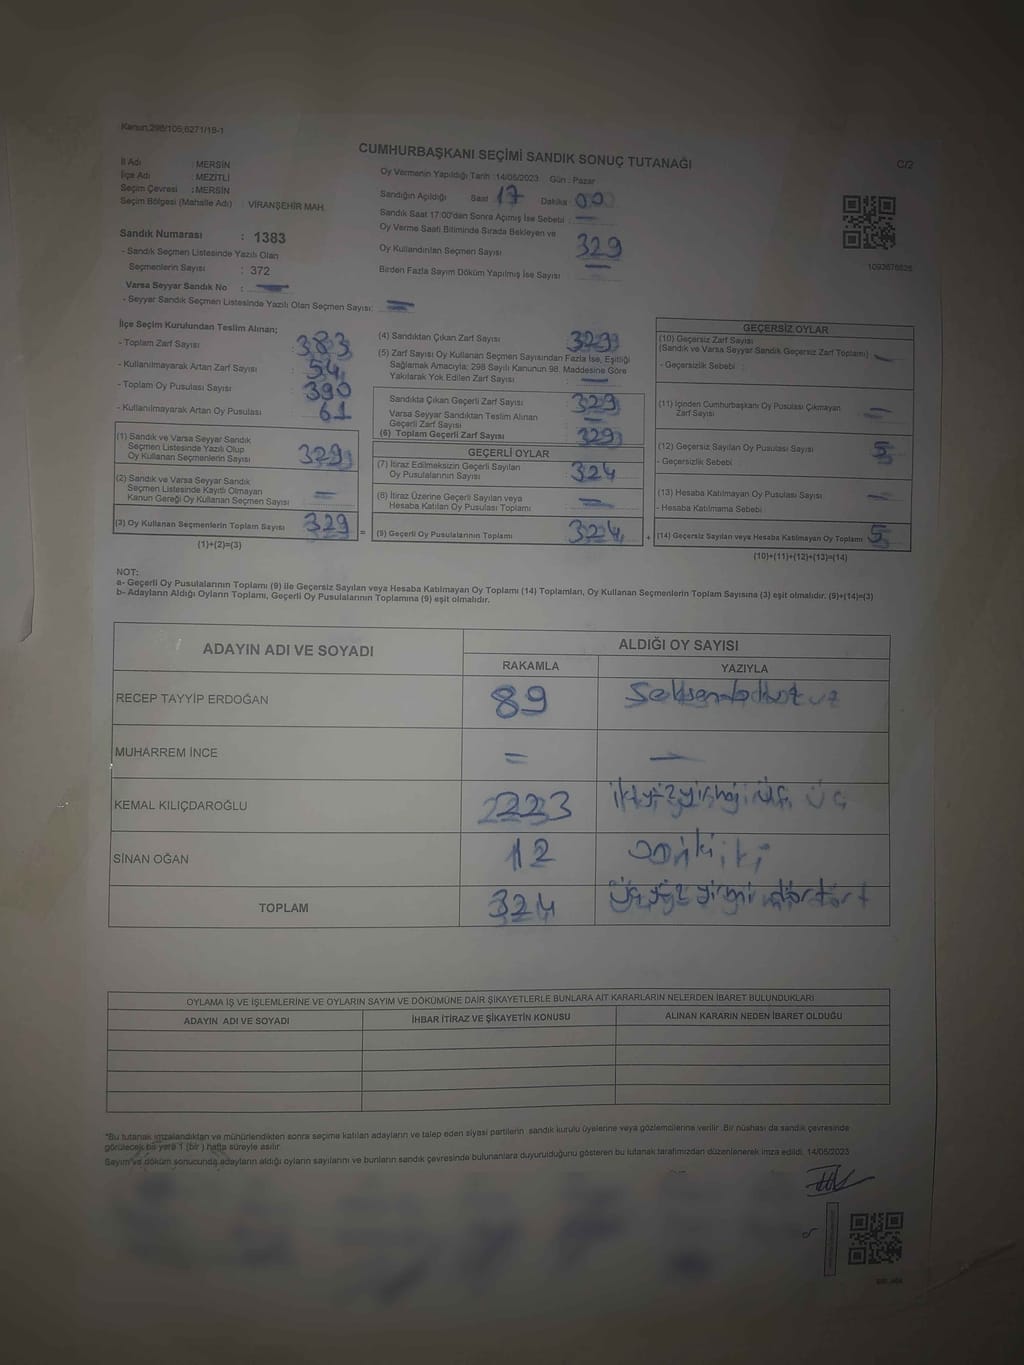 Kanun,298/105,6271/18-1
CUMHURBAŞKANI SEÇİMİ SANDIK SONUÇ TUTANAĞI
C/2
İl Adı : MERSİN
İlçe Adı : MEZİTLİ
Seçim Çevresi : MERSİN
Seçim Bölgesi (Mahalle Adı) : VİRANŞEHİR MAH.
Sandık Numarası : 1383
- Sandık Seçmen Listesinde Yazılı Olan
Seçmenlerin Sayısı : 372
Varsa Seyyar Sandık No :
- Seyyar Sandık Seçmen Listesinde Yazılı Olan Seçmen Sayısı:
Oy Vermenin Yapıldığı Tarih :14/05/2023 Gün : Pazar
Sandığın Açıldığı Saat 17 Dakika : 00
Sandık Saat 17:00'den Sonra Açımış İse Sebebi : —
Oy Verme Saati Bitiminde Sırada Bekleyen ve
Oy Kullandırılan Seçmen Sayısı 329
Birden Fazla Sayım Döküm Yapılmış İse Sayısı : —
1093676625
İlçe Seçim Kurulundan Teslim Alınan;
- Toplam Zarf Sayısı : 383
- Kullanılmayarak Artan Zarf Sayısı : 54
- Toplam Oy Pusulası Sayısı : 390
- Kullanılmayarak Artan Oy Pusulası : 61
(1) Sandık ve Varsa Seyyar Sandık
Seçmen Listesinde Yazılı Olup
Oy Kullanan Seçmenlerin Sayısı 329
(2) Sandık ve Varsa Seyyar Sandık
Seçmen Listesinde Kayıtlı Olmayan
Kanun Gereği Oy Kullanan Seçmen Sayısı =
(3) Oy Kullanan Seçmenlerin Toplam Sayısı 329 =
(1)+(2)=(3)
(4) Sandıktan Çıkan Zarf Sayısı 329
(5) Zarf Sayısı Oy Kullanan Seçmen Sayısından Fazla İse, Eşitliği
Sağlamak Amacıyla; 298 Sayılı Kanunun 98. Maddesine Göre
Yakılarak Yok Edilen Zarf Sayısı : —
Sandıkta Çıkan Geçerli Zarf Sayısı 329
Varsa Seyyar Sandıktan Teslim Alınan
Geçerli Zarf Sayısı —
(6) Toplam Geçerli Zarf Sayısı 329
GEÇERLİ OYLAR
(7) İtiraz Edilmeksizin Geçerli Sayılan
Oy Pusulalarının Sayısı 324
(8) İtiraz Üzerine Geçerli Sayılan veya
Hesaba Katılan Oy Pusulası Toplamı =
(9) Geçerli Oy Pusulalarının Toplamı 324 +
GEÇERSİZ OYLAR
(10) Geçersiz Zarf Sayısı
(Sandık ve Varsa Seyyar Sandık Geçersiz Zarf Toplamı) —
- Geçersizlik Sebebi :
(11) İçinden Cumhurbaşkanı Oy Pusulası Çıkmayan
Zarf Sayısı =
(12) Geçersiz Sayılan Oy Pusulası Sayısı 5
- Geçersizlik Sebebi
(13) Hesaba Katılmayan Oy Pusulası Sayısı —
- Hesaba Katılmama Sebebi
(14) Geçersiz Sayılan veya Hesaba Katılmayan Oy Toplamı 5
(10)+(11)+(12)+(13)=(14)
NOT:
a- Geçerli Oy Pusulalarının Toplamı (9) ile Geçersiz Sayılan veya Hesaba Katılmayan Oy Toplamı (14) Toplamları, Oy Kullanan Seçmenlerin Toplam Sayısına (3) eşit olmalıdır. (9)+(14)=(3)
b- Adayların Aldığı Oyların Toplamı, Geçerli Oy Pusulalarının Toplamına (9) eşit olmalıdır.
ADAYIN ADI VE SOYADI ALDIĞI OY SAYISI
RAKAMLA YAZIYLA
RECEP TAYYİP ERDOĞAN 89
MUHARREM İNCE = —
KEMAL KILIÇDAROĞLU 223
SİNAN OĞAN 12 oniki
TOPLAM 324 üçyüz yirmi dört
OYLAMA İŞ VE İŞLEMLERİNE VE OYLARIN SAYIM VE DÖKÜMÜNE DAİR ŞİKAYETLERLE BUNLARA AİT KARARLARIN NELERDEN İBARET BULUNDUKLARI
ADAYIN ADI VE SOYADI İHBAR İTİRAZ VE ŞİKAYETİN KONUSU ALINAN KARARIN NEDEN İBARET OLDUĞU
*Bu tutanak imzalandıktan ve mühürlendikten sonra seçime katılan adayların ve talep eden siyasi partilerin sandık kurulu üyelerine veya gözlemcilerine verilir. Bir nüshası da sandık çevresinde
görülecek bir yere 1 (bir ) hafta süreyle asılır.
Sayım ve döküm sonucunda adayların aldığı oyların sayılarını ve bunların sandık çevresinde bulunanlara duyurulduğunu gösteren bu tutanak tarafımızdan düzenlenerek imza edildi. 14/05/2023